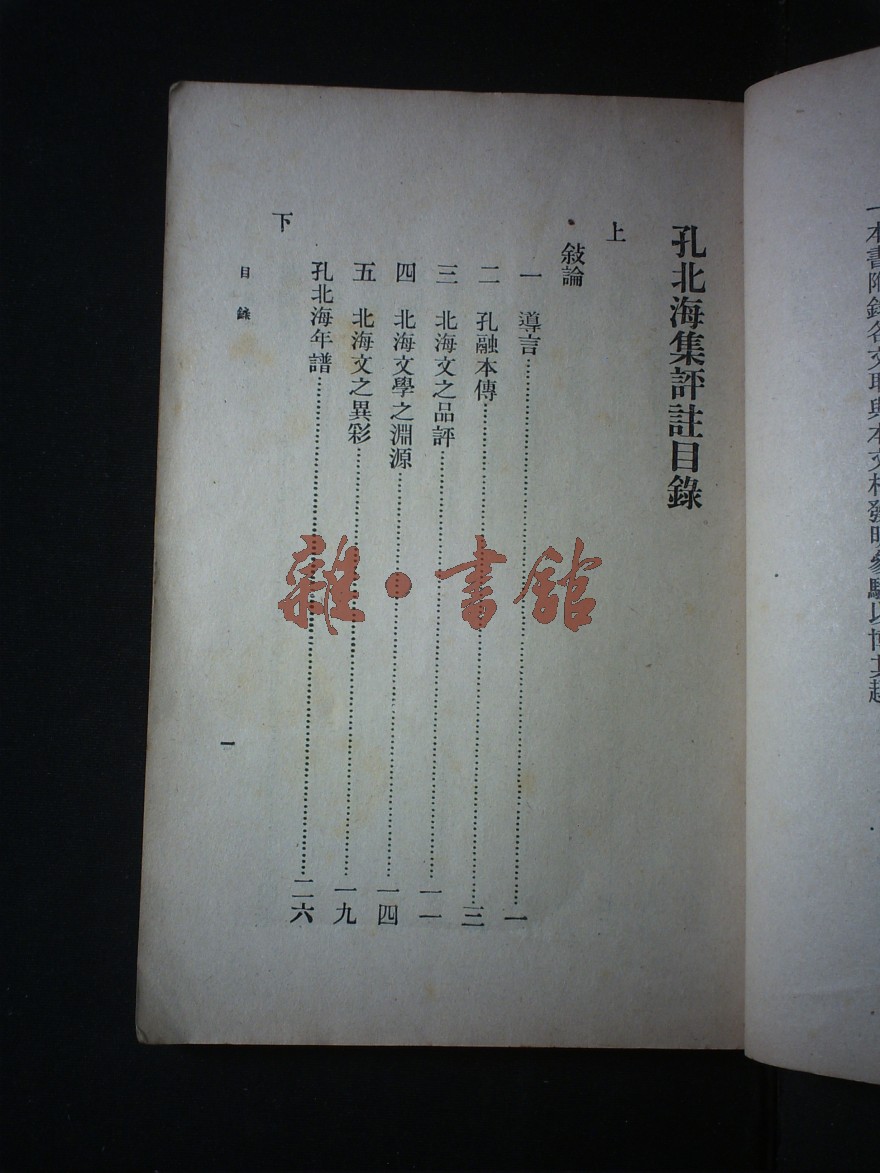 一本書附錄各文取與本文相發明參驗以博其趣
孔北海集評註目錄
上
敍論
一 導言……一
二 孔融本傳……三
三 北海文之品評……一一
四 北海文學之淵源……一四
五 北海文之異彩……一九
孔北海年譜……二六
下
目錄
一
雜·書館